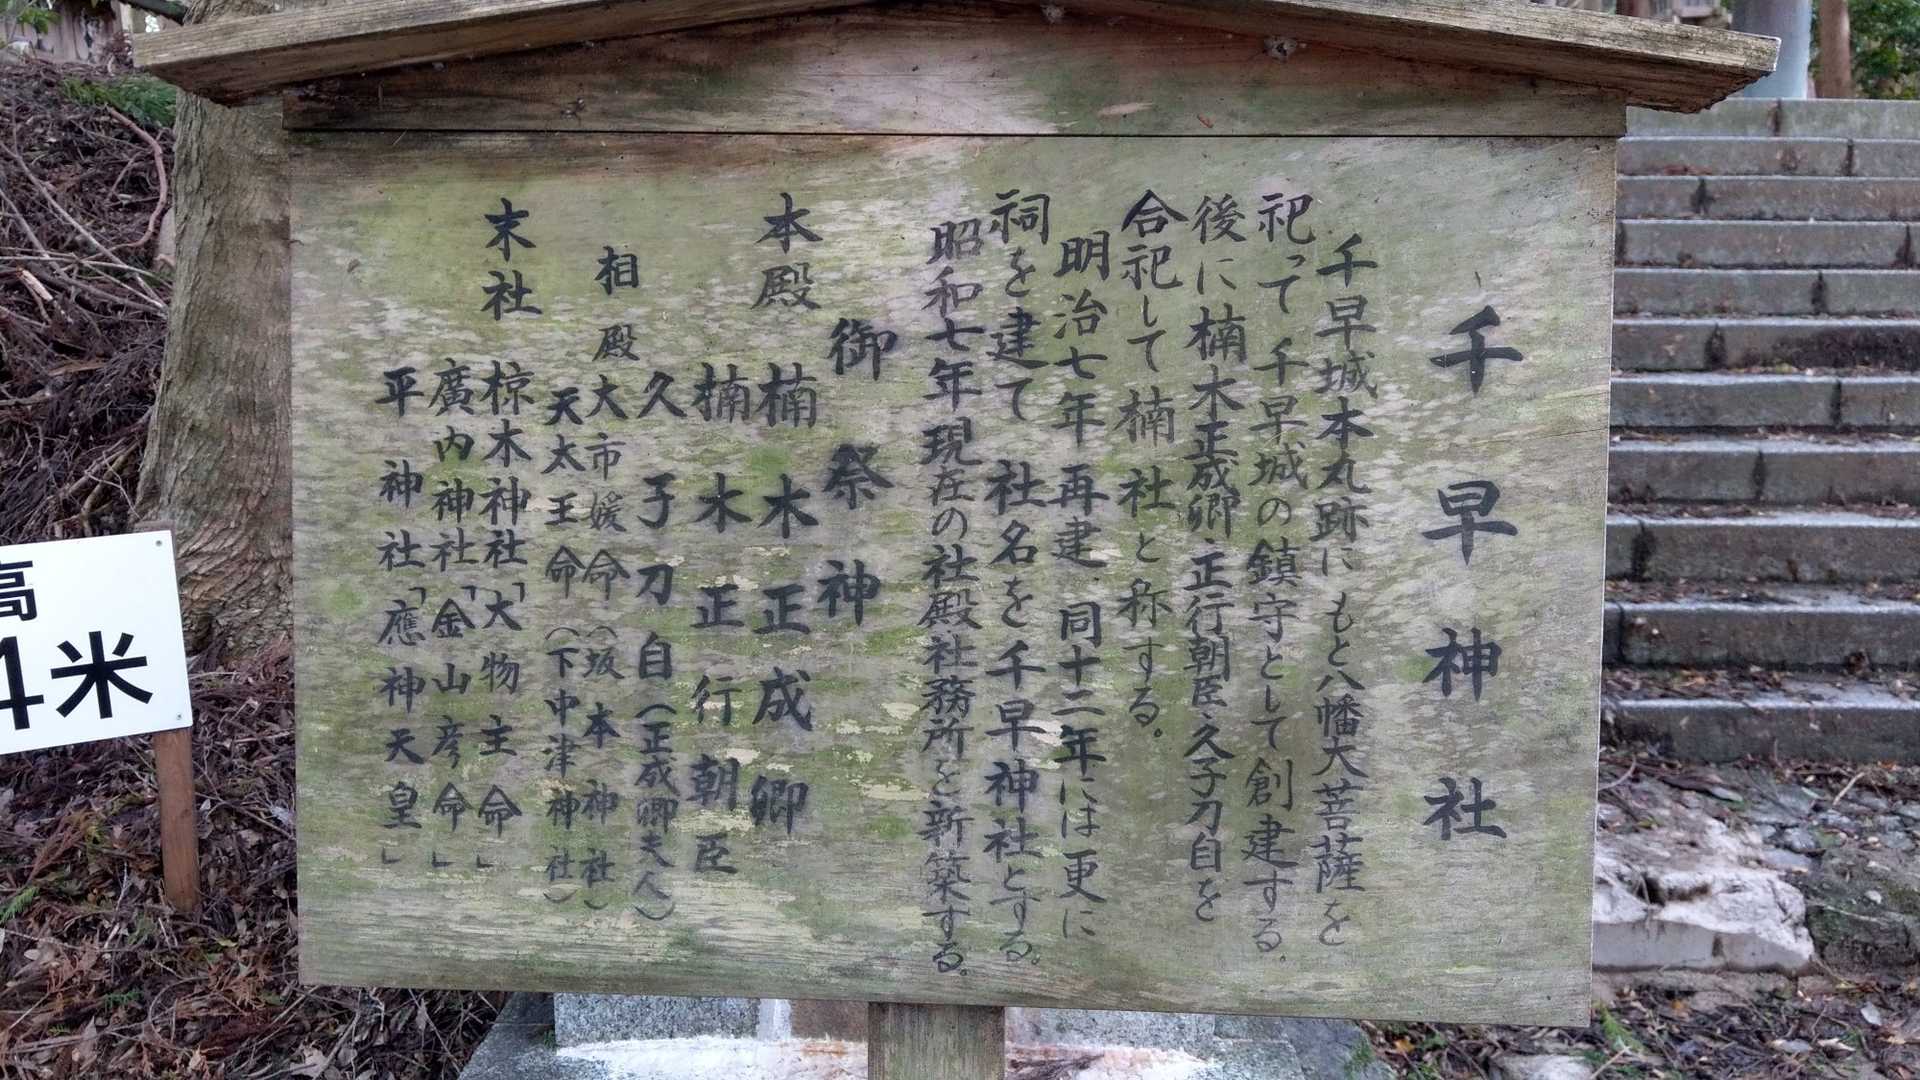 千早神社
千早城本丸跡に もと八幡大菩薩を
祀って千早城の鎮守として創建する。
後に楠木正成卿、正行朝臣、久子刀自を
合祀して楠社と称する。
明治七年再建、同十二年には更に
祠を建て 社名を千早神社とする。
昭和七年現在の社殿社務所を新築する。
御祭神
本殿 楠木正成卿
楠木正行朝臣
久子刀自(正成卿夫人)
相殿 大市媛命(坂本神社)
天太王命(下中津神社)
末社 椋木神社「大物主命」
廣内神社「金山彦命」
平神社「應神天皇」
高
4米